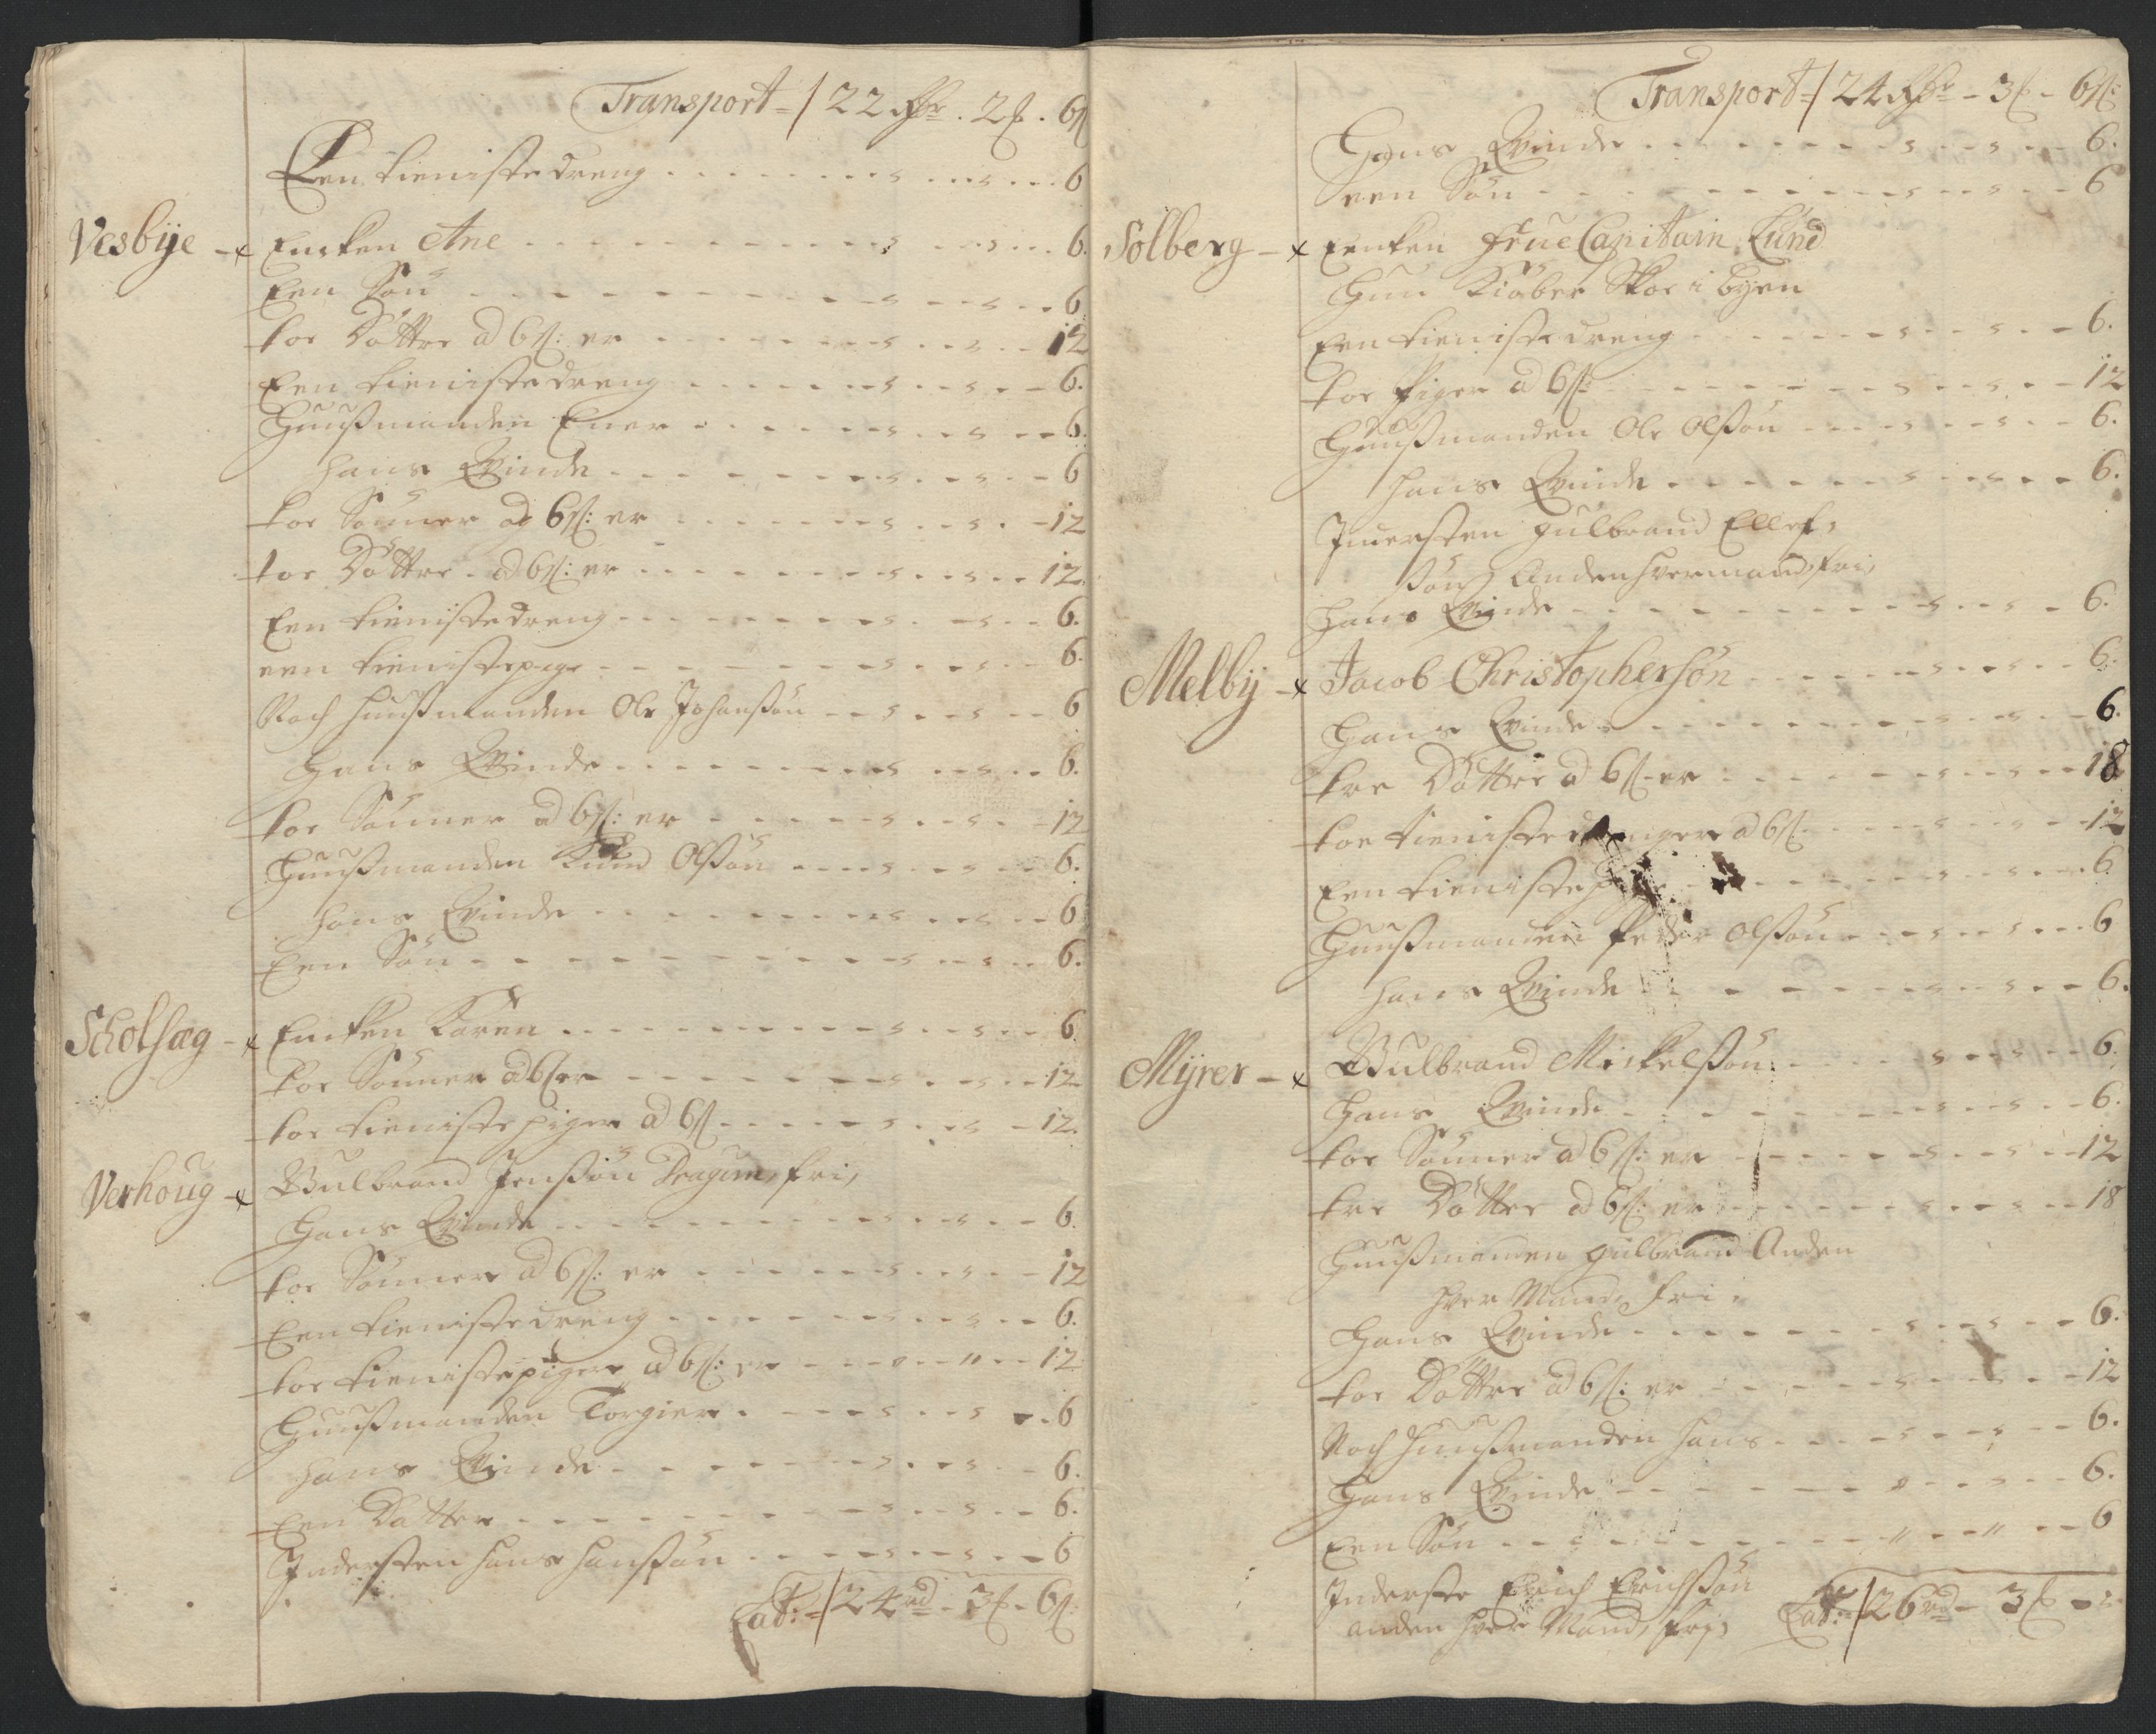 Transport - / 22 Rdr . 2 ß . 6 ß
Een tieniste dreng - - - 6
Vesbije - x Encken Ane - - - 6.
Een Søn - - - 6
toe Døttre ad 6 ß: er - - - 12
Een tieniste dreng - - - 6.
Huusmanden Ener - - - 6.
hans Qvinde - - - 6
toe Sønner ad 6 ß: er - - - 12
toe Døttre ad 6 ß: er - - - 12.
Een tieniste dreng - - - 6.
een tieniste pige - - - 6.
Noch huusmanden Ole Johansøn - - - 6
Hans Qvinde - - - 6.
toe Sønner ad 6 ß: er - - - 12
Huusmanden Knud Olssøn - - - 6.
hans Qvinde - - - 6
Een Søn - - - 6.
Scholsag - x Encken Karen - - - 6
toe Sønner ad 6 ß er - - - 12
toe tieniste piger ad 6 ß - - - 12.
Verhoug - x Gulbrand Jenssøn Dragun, fri,
Hans Qvinde - - - 6.
toe Sønner ad 6 ß: er - - - 12
Een tieniste dreng - - - 6.
toe tieniste piger ad 6 ß: er - - - 12
Huusmanden Torgier - - - 6
hans Qvinde - - - 6.
Een Datter - - - 6.
Indersten hans hanssøn - - - 6
Lat: - / 24 rd - 3 ß - 6 ß
Transport - / 24 Rdr - 3 ß - 6 ß:
Hans Qvinde - - - 6.
een Søn - - - 6
Solberg - x Eencken frue Capitain Lund
Hun Kiøber Skoe i byen
Een tieniste dreng - - - 6.
toe Piger ad 6 ß - - - 12
Huusmanden Ole Olssøn - - - 6.
hans Qvinde - - - 6.
Inersten gulbrand Ellef,
søn, Anden hvermand, fri,
hans Qvinde - - - 6.
Melbij - x Jacob Christophersøn - - - 6.
Hans Qvinde - - - 6.
tre Døttre ad 6 ß er - - - 18
toe tieniste drenger ad 6 ß - - - 12
Een tieniste - - - 6
Huusmanden Peder Olssøn - - - 6
hans Qvinde - - - 6.
Mijrer - x Gulbrand Mickelssøn - - - 6.
Hans Qvinde - - - 6.
toe Sønner ad 6 ß: er - - - 12
tre Døtter ad 6 ß: er - - - 18
Huusmanden gulbrand Anden
hver Mand, fri,
Hans Qvinde - - - 6.
toe Døttre ad 6 ß: er - - - 12
Noch Huusmanden hans - - - 6.
Hans Qvinde - - - 6.
Een Søn - - - 6
Inderste Erich Erichssøn
anden hver Mand, frj, Lat: - / 26 rd - 3 ß -